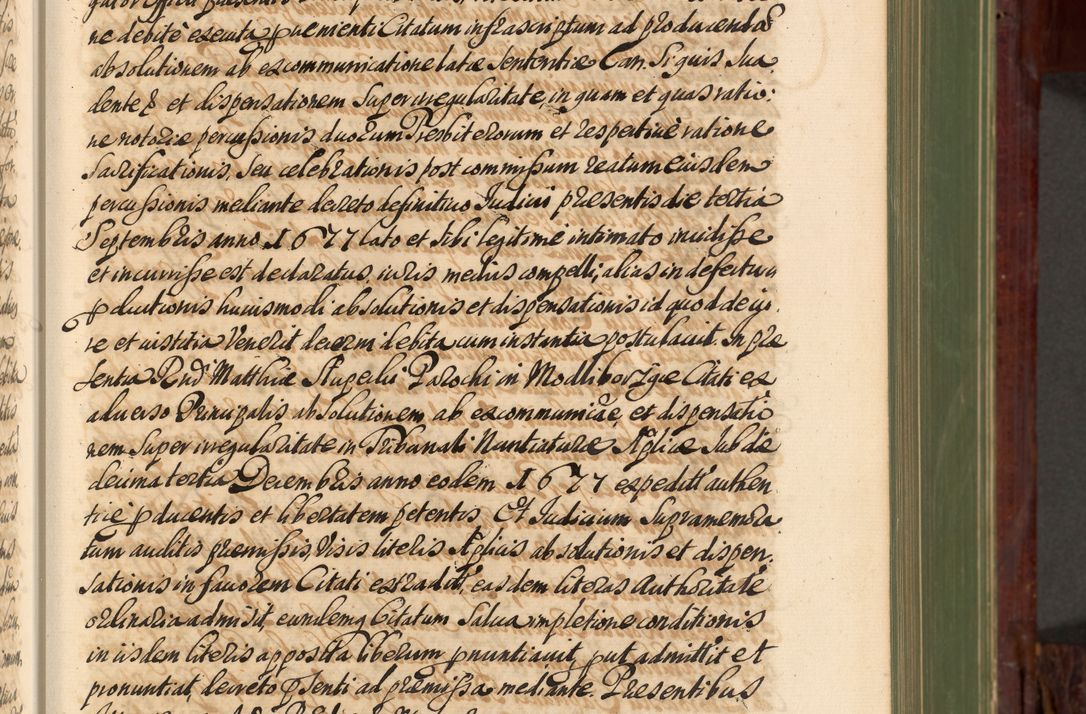 ne debitè executa pvementi Citatum infrascriptum ad producendã
absolutionem ab excommunicatione latæ Sententiæ Can. Si quis Sua
dente & et dispensationem Super irregularitate, in quam et quas ratio:
ne notoriæ percussionis duorum Presbiterorum et respectiuè ratione
Sacrificationis, Seu celebrationis post commissum reatum eiusdem
percussionis mediante decreto definitiuo Iudicii præsentis die tertia
Septembris anno 1677 lato et Sibi legitimè intimato incidisse
et incurrisse est declaratus, iuris mediis compelli, alias in defectum
pductionis huiusmodi absolutionis et dispensationis id quod de iu,
re et iustitia Venerit decerni debita cum instantia postulauit. In præ
Sentia Rndi Matthiæ Augelii Parochi in Modliborzyce Citati ex
aduerso Principalis absolutionem ab excommunicãe, et dispensatiõ
nem Super irregularitate in Tribunali Nuntiaturæ Aplicæ Sub die
decima tertia Decembris anno eodem 1677 expedit' authen
ticè pducentis et libertatem petentis. Et Iudicium Supramemora
tum auditis præmissis, Visis literis Aplicis absolutionis et dispen,
sationis in fauorem Citati extradit', easdem literas Authoritate
ordinaria admisit, eundemq Citatum Salua impletione conditionis
in iisdem literis apposita liberum pnuntiauit, put admittit et
pronuntiat, decreto pSenti ad præmissa mediante. Præsentibus